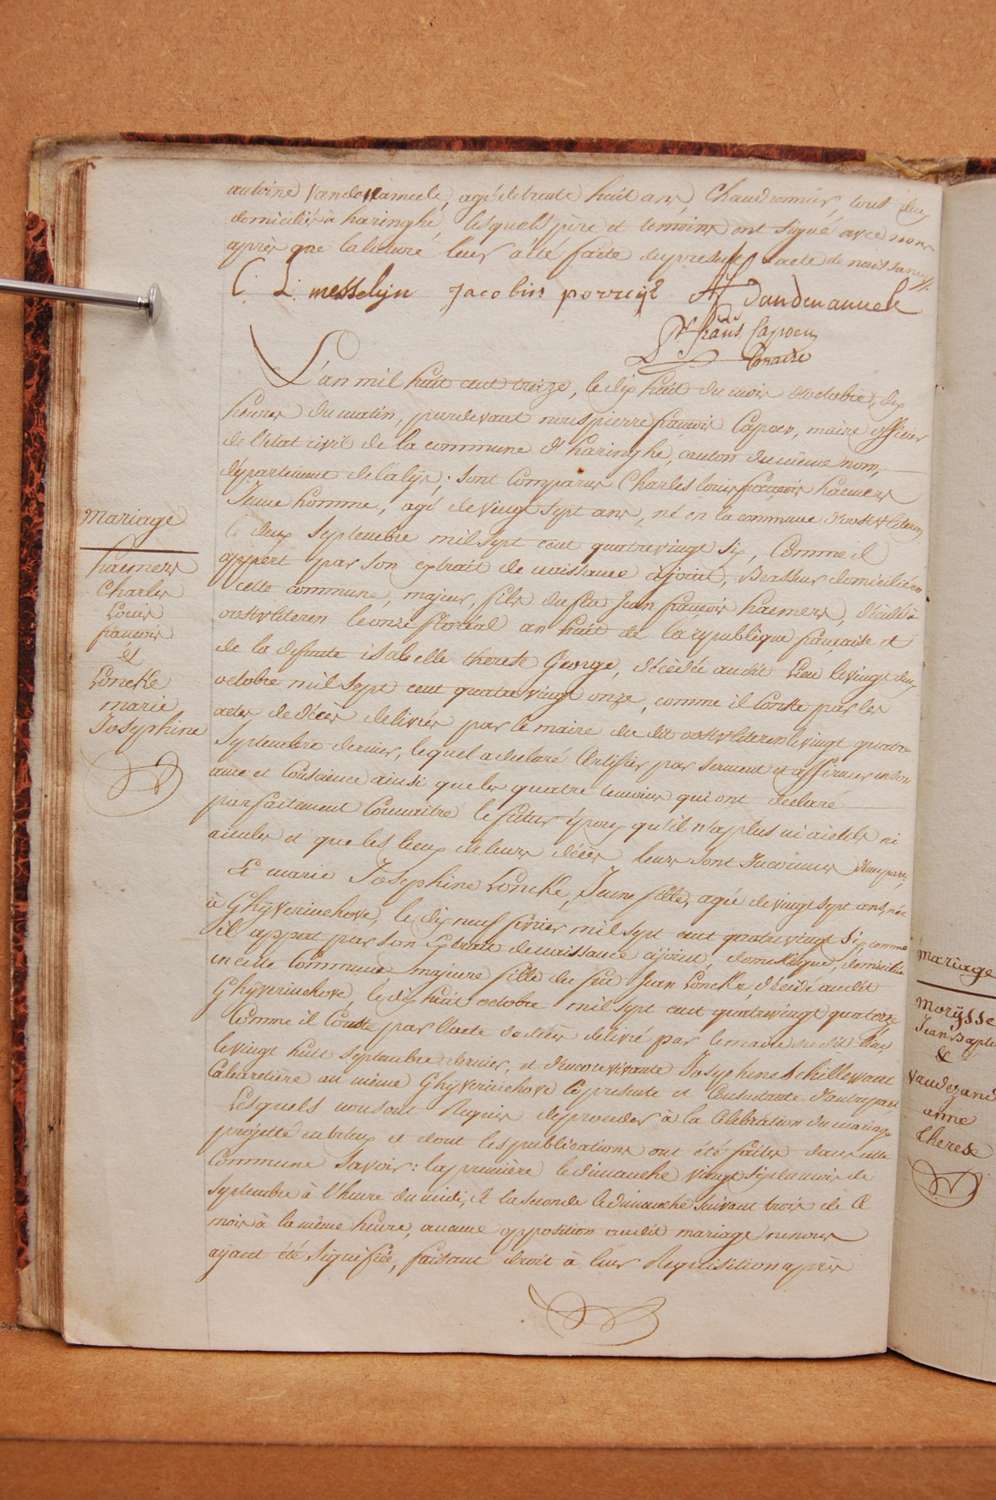 antoine Vandenameele, agé de trente huit ans, Chaudronnier, tous deux
domiciliés à haringhe, lesquels père et temoins ont signé avec nous
après que lecture leur a été faite du présent acte de naissance
C. L. messelyn Jacobus porreije A F Vandenameele
Pre frans Capoen
Maire
L'an mil huit cent treize, le dix huit du mois d'octobre, dix
heures du matin, pardevant nous pierre françois Capoen, maire officier
de l'état civil de la commune d'haringhe, canton du même nom,
département de la lys; sont comparus Charles louis françois haemers
Jeune homme, agé de vingt sept ans, né en la commune d'oostvleteren
le deux Septembre mil sept cent quatre vingt six, Comme il
appert par son extrait de naissance ajoint, Brasseur domicilié en
cette commune, majeur, fils du feu Jean françois haemers, décédé à
oostvleteren le onze floréal an huit de la république française et
de la defunte isabelle therese George, décédée audit lieu le vingt deux
octobre mil sept cent quatre vingt onze, comme il conste par les
actes de décès delivrés par le maire du dit oostvleteren le vingt quatre
Septembre dernier, lequel a declaré Certifier par serment et affirmer en son
ame et Consience ainsi que les quatre temoins qui ont declaré
parfaitement Connaitre le futur époux qu'il n'a plus ni aieuls ni
aieules et que les lieux de leurs décès leurs sont Inconnus d'une part,
Et marie Josephine Loncke, Jeune fille, agée de vingt sept ans, née
à Ghyverinchove, le dix neuf février mil sept cent quatre vingt six, comme
il appert par son Extrait de naissance ajoint, domestique, domiciliée
en cette Commune majeure fille du feu Jean Loncke, décédé audit
Ghyverinchove, le dix huit octobre mil sept cent quatre vingt quatorze
Comme il Conste par l'acte de décès délivré par le maire du dit lieu
le vingt huit septembre dernier, et d'encore vivante Josephine Schillewaert
Cabaretière au même Ghyverinchove Ci présente et Consentante d'autre part
Lesquels nous ont Requis de procéder à la Célébration du mariage
projetté entr'eux et dont les publications ont été faites dans cette
Commune Savoir: la première le dimanche vingt six du mois de
Septembre à l'heure du midi, et la seconde le dimanche suivant trois de ce
mois à la même heure, aucune opposition audit mariage ne nous
ayant été Signifiée, faisant droit à leur Réquisition après
Mariage
haemers
Charles
Louis
françois
et
Loncke
marie
Josephine
Mariage
Morÿsse
Jean Bapte
&
Vandezand
anne
therese